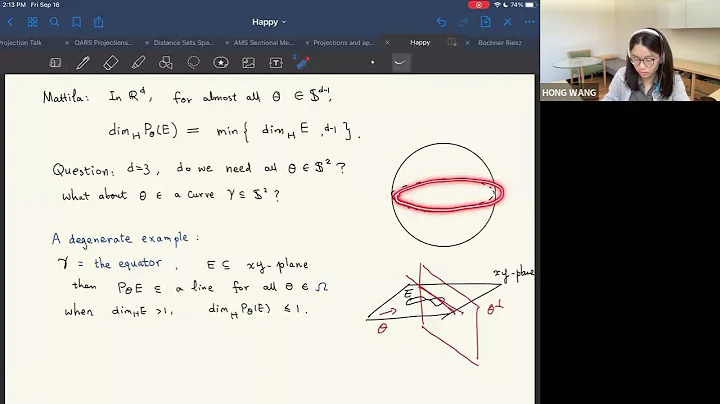 2:13 PM Fri Sep 16
74%
Happy
Projection Talk
OARS Projections...
Distance Sets Spa...
AMS Sectional Me...
Projections and ap...
Happy
Bochner Riesz
HONG WANG
Mattila: In ℝ^d, for almost all θ ∈ 𝕊^{d-1},
dim_H P_θ(E) = min{ dim_H E, d-1 }.
Question: d=3, do we need all θ ∈ 𝕊² ?
What about θ ∈ a curve γ ⊆ 𝕊² ?
A degenerate example:
γ = the equator, E ⊆ xy-plane
then P_θ E ⊆ a line for all θ ∈ Ω
when dim_H E > 1, dim_H P_θ(E) ≤ 1.
xy-plane
E
θ
θ^⊥